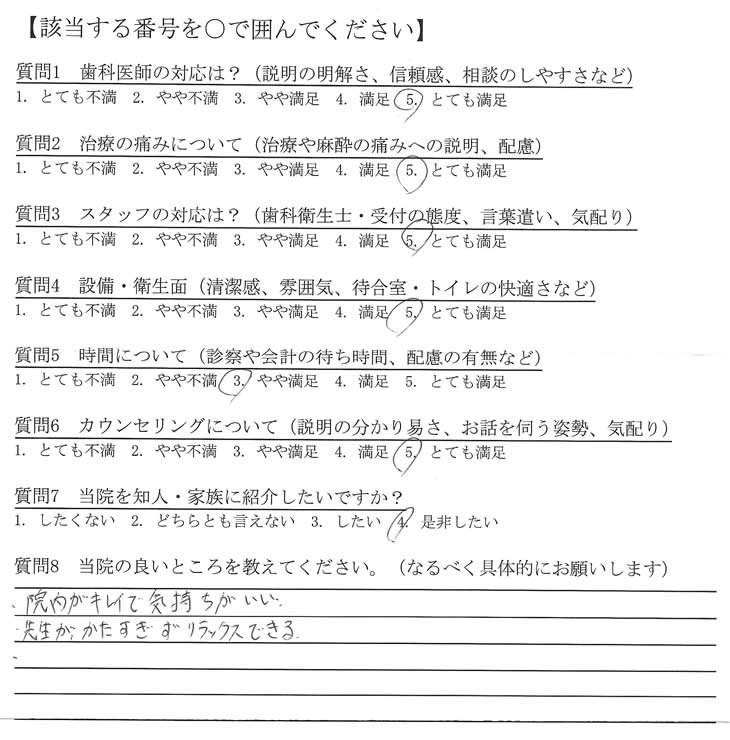 【該当する番号を〇で囲んでください】
質問1 歯科医師の対応は？（説明の明解さ、信頼感、相談のしやすさなど）
1. とても不満 2. やや不満 3. やや満足 4. 満足 5. とても満足
質問2 治療の痛みについて（治療や麻酔の痛みへの説明、配慮）
1. とても不満 2. やや不満 3. やや満足 4. 満足 5. とても満足
質問3 スタッフの対応は？（歯科衛生士・受付の態度、言葉遣い、気配り）
1. とても不満 2. やや不満 3. やや満足 4. 満足 5. とても満足
質問4 設備・衛生面（清潔感、雰囲気、待合室・トイレの快適さなど）
1. とても不満 2. やや不満 3. やや満足 4. 満足 5. とても満足
質問5 時間について（診察や会計の待ち時間、配慮の有無など）
1. とても不満 2. やや不満 3. やや満足 4. 満足 5. とても満足
質問6 カウンセリングについて（説明の分かり易さ、お話を伺う姿勢、気配り）
1. とても不満 2. やや不満 3. やや満足 4. 満足 5. とても満足
質問7 当院を知人・家族に紹介したいですか？
1. したくない 2. どちらとも言えない 3. したい 4. 是非したい
質問8 当院の良いところを教えてください。（なるべく具体的にお願いします）
、院内がキレイで気持ちがいい.
、先生が、かたすぎずリラックスできる.
、